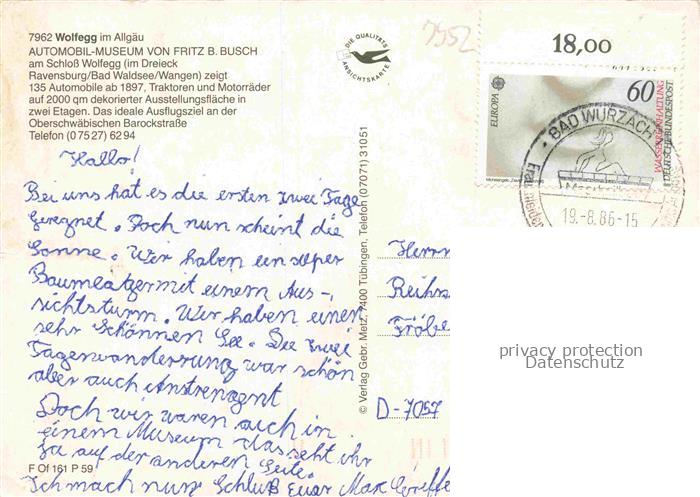 7962 Wolfegg im Allgäu
AUTOMOBIL-MUSEUM VON FRITZ B. BUSCH
am Schloß Wolfegg (im Dreieck
Ravensburg/Bad Waldsee/Wangen) zeigt
135 Automobile ab 1897, Traktoren und Motorräder
auf 2000 qm dekorierter Ausstellungsfläche in
zwei Etagen. Das ideale Ausflugsziel an der
Oberschwäbischen Barockstraße
Telefon (0 75 27) 62 94
Hallo!
Bei uns hat es die ersten zwei Tage
geregnet. Doch nun scheint die
Sonne. Wir haben ein super
Baumeatzer mit einem Aus-
sichtsturm. Wir haben einen
sehr Schönnen See. Die zwei
Tagenwanderrung war schön
aber auch Anstrengent
Doch wir waren auch in
einem Museum das seht ihr
ja auf der anderen Seite.
Ich mach nun Schluß Euar Max
F Of 161 P 59
DIE QUALITÄTS
ANSICHTSKARTE
© Verlag Gebr. Metz, 7400 Tübingen, Telefon (07071) 31051
7952
18,00
EUROPA
60
WASSERREINHALTUNG
DEUTSCHE BUNDESPOST
BAD WURZACH
19.-8.86-15
Herrn
Reihn
Fröbe
D-7057
privacy protection
Datenschutz